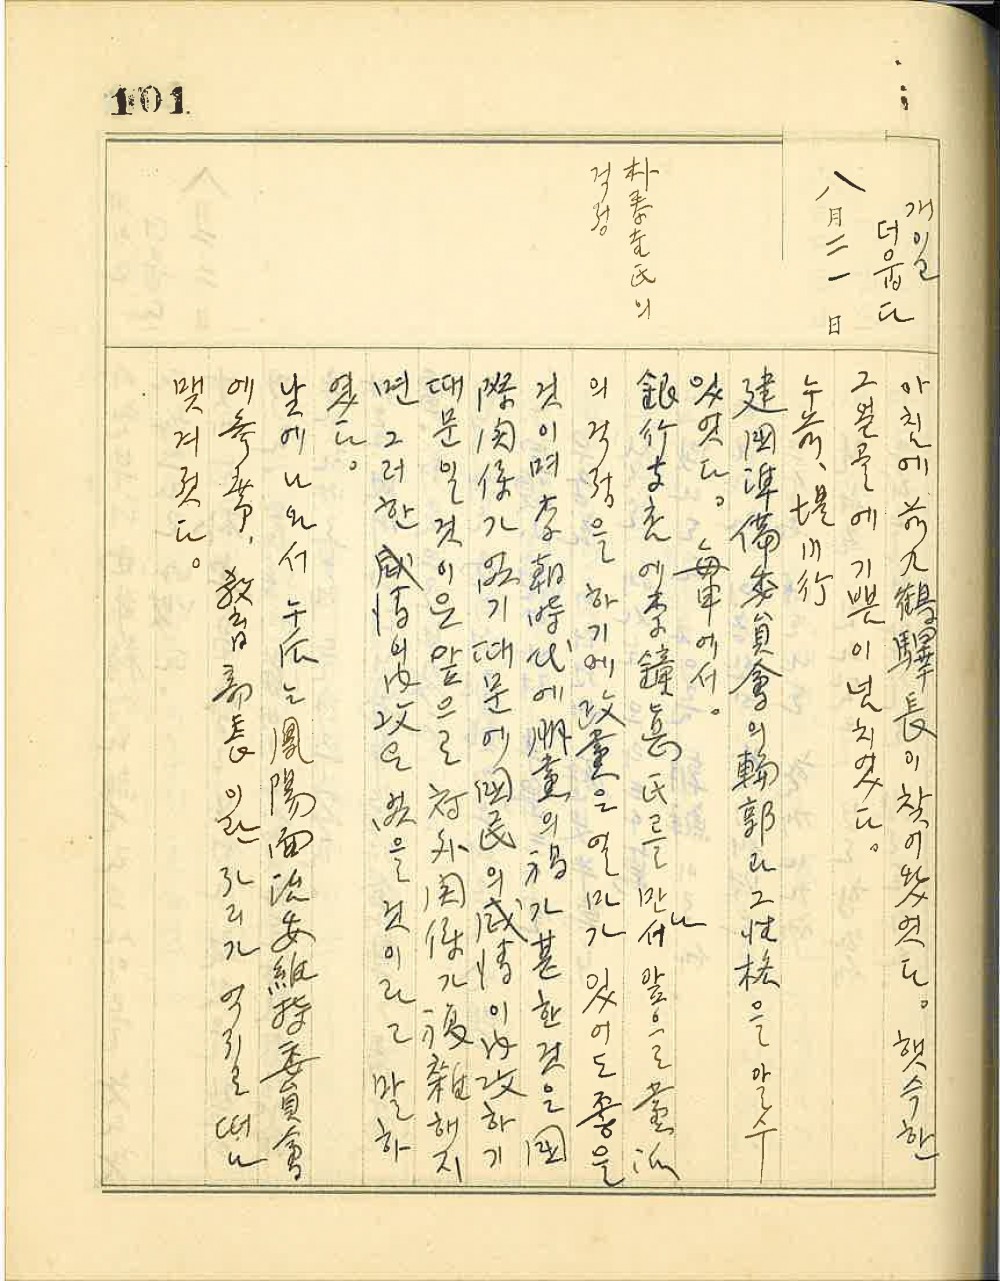 101
八月二一日
개이고
더웁다
朴泰圭氏의
걱정
아침에 前九鶴驛長이 찾어왔엇다。 햇슥한
그 얼골에 기쁨이 넘치였다。
午前、堤川行
建国準備委員會의 輪郭과 그 性格을 알 수
있엇다。 每車에서。
銀行支店에 李鐘 氏를 만나서 앞으로 黨派
의 걱정을 하기에 政黨은 열마가 있어도 좋을
것이며 李朝時代에 朋黨의 禍가 甚한 것은 国
際関係가 없기 때문에 国民의 感情이 内攻하기
때문일 것이은 앞으로 対外関係가 複雜해지
면 그러한 感情의 内攻은 없을 것이라고 말하
였다。
낮에 나와서 午后는 鳳陽面治安維持委員會
에 參席、 敎育部長이란 자리가 억지로 떠
맷겨젓다。